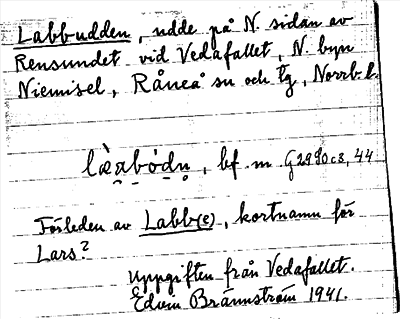 Labbudden, udde på N. sidan av
Rensundet vid Vedafallet, N. byn
Niemisel, Råneå sn och tg, Norrb. l.
bf. m G2990c8, 44
Förleden av Labb(e), kortnamn för
Lars?
Uppgiften från Vedafallet.
Edvin Brännström 1941.